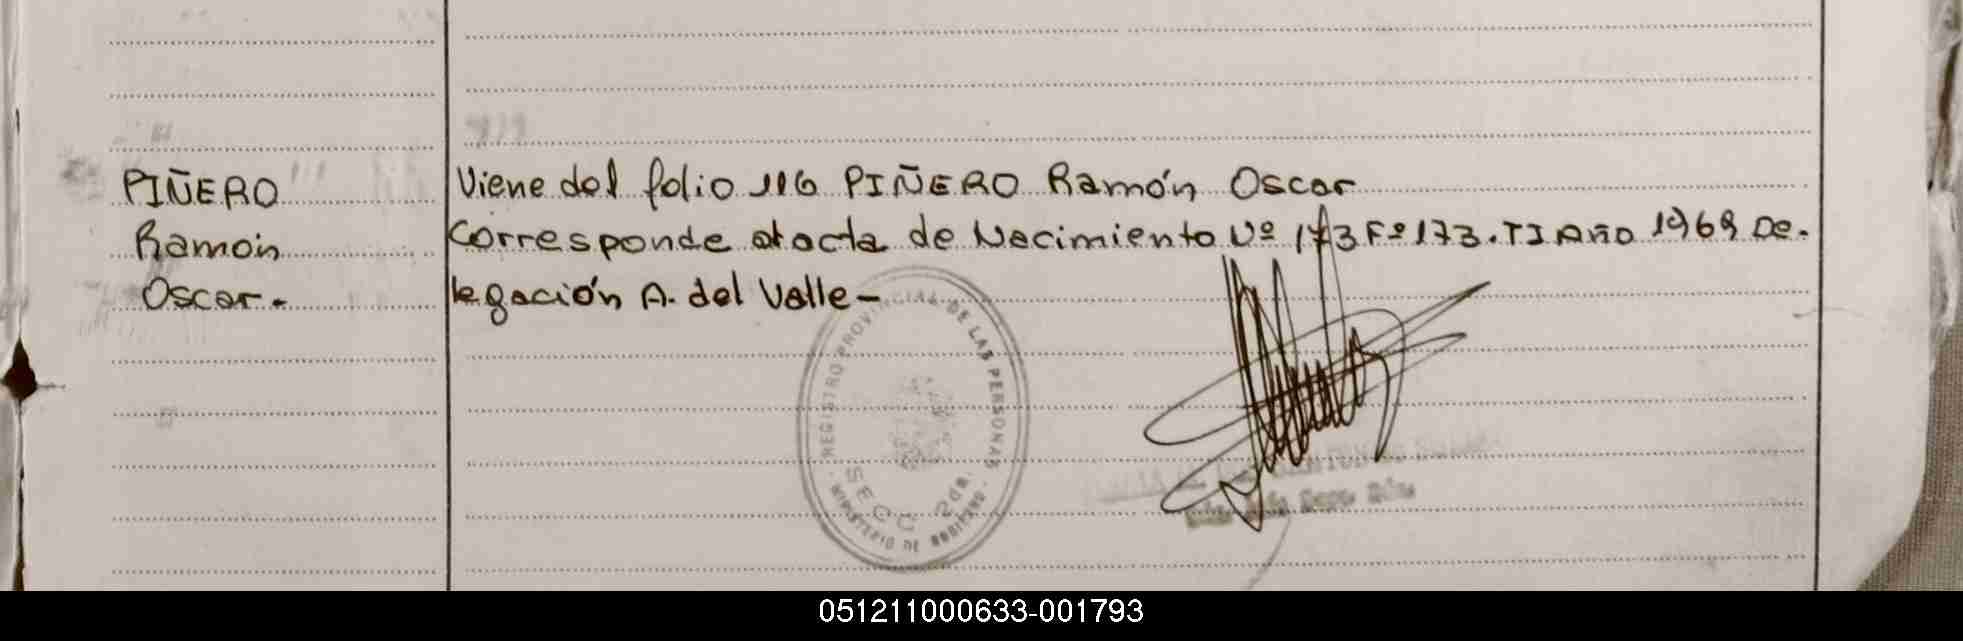 PIÑERO
Ramón
Oscar.-
Viene del folio 116 PIÑERO Ramón Oscar
Corresponde at acta de Nacimiento Nº 173 Fº 173. TI Año 1969 De-
legación A. del Valle-
REGISTRO PROVINCIAL DE LAS PERSONAS
SECC.
MINISTERIO DE GOBIERNO
051211000633-001793